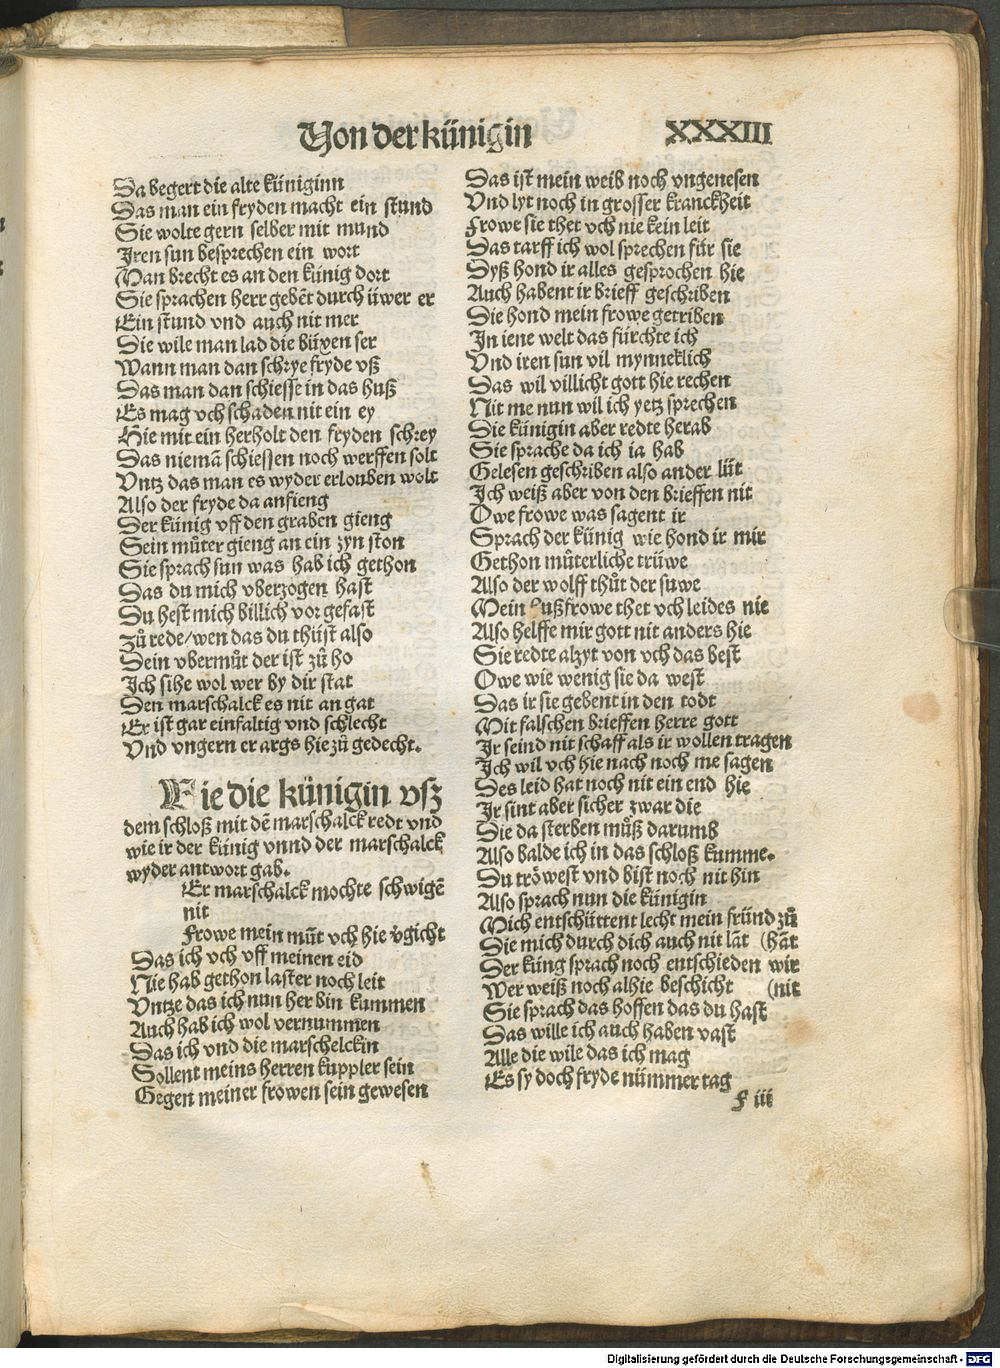 Von der künigin XXXIII
Da begert die alte küniginn
Das man ein fryden macht ein stund
Sie wolte gern selber mit mund
Iren sun besprechen ein wort
Man brecht es an den künig dort
Sie sprachen herr gebēt durch üwer er
Ein stund vnd auch nit mer
Die wile man lad die büxen ser
Wann man dan schrye fryde vß
Das man dan schiesse in das huß
Es mag vch schaden nit ein ey
Hie mit ein herholt den fryden schrey
Das niemā schiessen noch werffen solt
Vntz das man es wyder erlouben wolt
Also der fryde da anfieng
Der künig vff den graben gieng
Sein můter gieng an ein zyn ston
Sie sprach sun was hab ich gethon
Das du mich vberzogen hast
Du hest mich billich vor gefast
Zů rede/wen das du thůst also
Dein vbermůt der ist zů ho
Ich sihe wol wer by dir stat
Den marschalck es nit an gat
Er ist gar einfaltig vnd schlecht
Vnd vngern er args hie zů gedecht.
Wie die künigin vsz
dem schloß mit dē marschalck redt vnd
wie ir der künig vnnd der marschalck
wyder antwort gab.
Er marschalck mochte schwigē
nit
Frowe mein můt vch hie v̄gicht
Das ich vch vff meinen eid
Nie hab gethon laster noch leit
Vntze das ich nun her bin kummen
Auch hab ich wol vernummen
Das ich vnd die marschelckin
Sollent meins herren kuppler sein
Gegen meiner frowen sein gewesen
Das ist mein weib noch vngenesen
Vnd lyt noch in grosser kranckheit
Frowe sie thet vch nie kein leit
Das tarff ich wol sprechen für sie
Dyß hond ir alles gesprochen hie
Auch habent ir brieff geschriben
Die hond mein frowe getriben
In iene welt das fürchte ich
Vnd iren sun vil mynneklich
Das wil villicht gott hie rechen
Nit me nun wil ich yetz sprechen
Die künigin aber redte herab
Sie sprache da ich ia hab
Gelesen geschriben also ander lüt
Ich weiß aber von den brieffen nit
Owe frowe was sagent ir
Sprach der künig wie hond ir mir
Gethon můterliche trüwe
Also der wolff thůt der suwe
Mein hußfrowe thet vch leides nie
Also helffe mir gott nit anders hie
Sie redte alzyt von vch das best
Owe wie wenig sie da west
Das ir sie gebent in den todt
Mit falschen brieffen herre gott
Ir seind nit schaff als ir wollen tragen
Ich wil vch hie nach noch me sagen
Des leid hat noch nit ein end hie
Ir sint aber sicher zwar die
Die da sterben můß darumb
Also balde ich in das schloß kumme.
Du tröwest vnd bist noch nit hin
Also sprach nun die künigin
Mich entschüttent lecht mein fründ zů
Die mich durch dich auch nit lāt (hāt
Der küng sprach noch entschieden wir
Wer weiß noch alhie beschicht (nit
Sie sprach das hoffen das du hast
Das wille ich auch haben vast
Alle die wile das ich mag
Es sy doch fryde nümmer tag
F iii
Digitalisierung gefördert durch die Deutsche Forschungsgemeinschaft - DFG